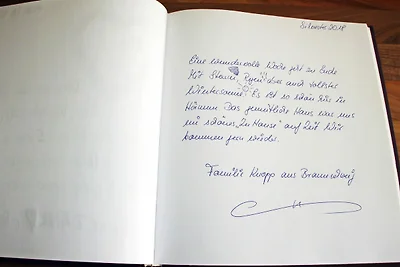 Silvester 2018
Eine wundervolle Woche geht zu Ende
Mit Sturm, und auch vollster
Wintersonne. Es ist so schön hier in
Das gemütliche Haus war uns
ein schönes „Zu Hause" auf Zeit. Wir
kommen gern wieder.
Familie Knopp aus Braunschweig